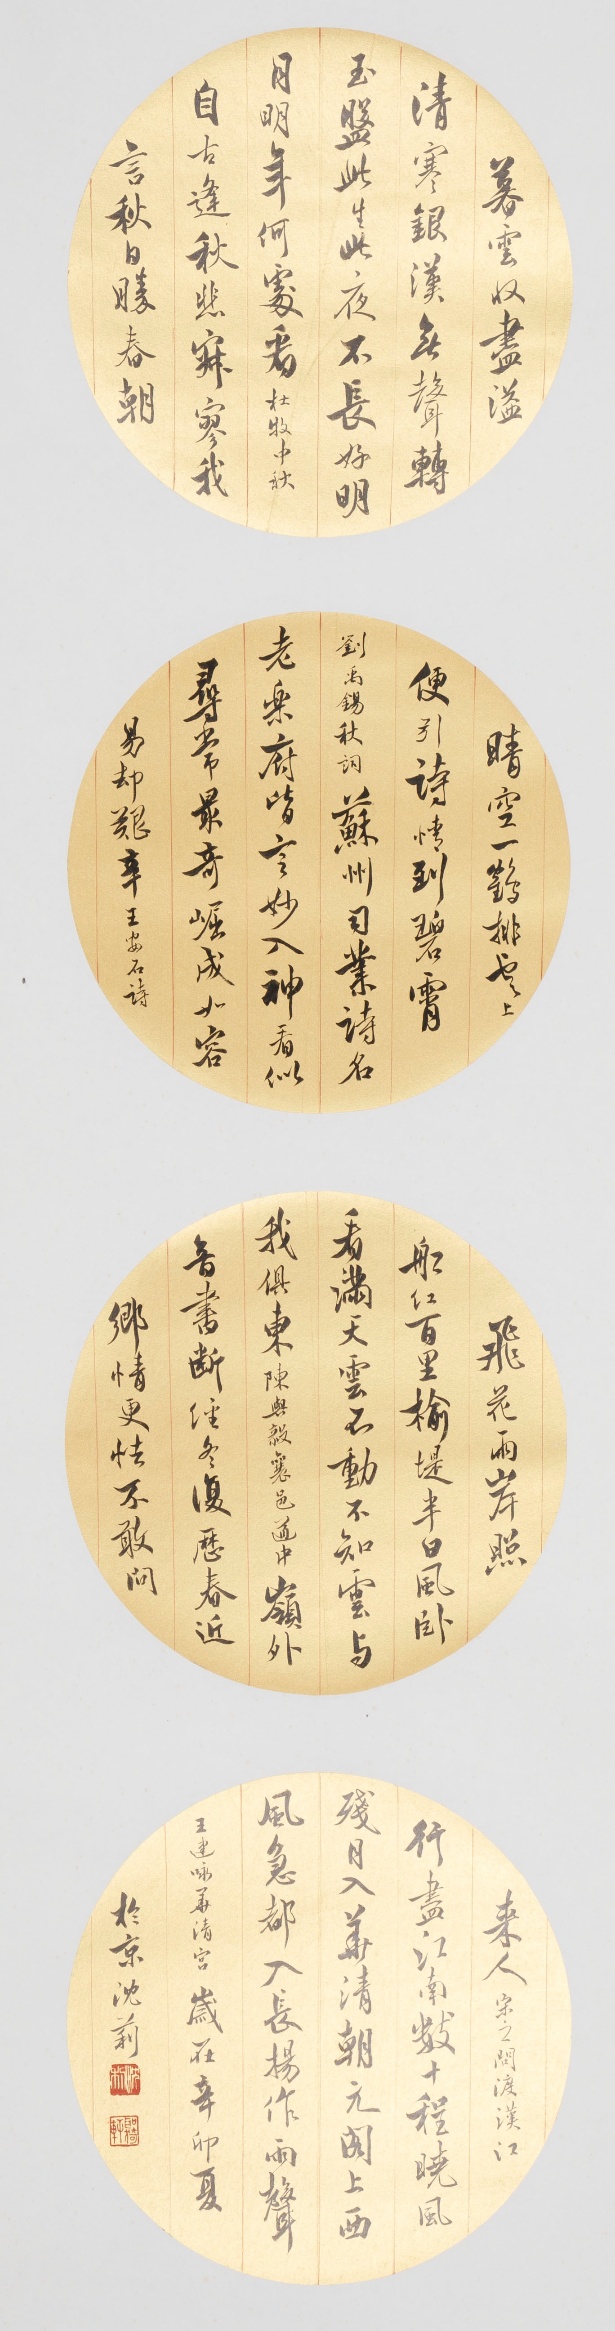 暮雲收盡溢
清寒銀漢無聲轉
玉盤此生此夜不長好明
月明年何處看杜牧中秋
自古逢秋悲寂寥我
言秋日勝春朝
晴空一鶴排雲上
便引詩情到碧霄
劉禹錫秋詞蘇州司業詩名
老樂府皆言妙入神看似
尋常最奇崛成如容
易却艱辛王安石詩
飛花兩岸照
船紅百里榆堤半日風卧
看滿天雲不動不知雲與
我俱東陳與義襄邑道中嶺外
音書斷經冬復歷春近
鄉情更怯不敢問
來人宋之問渡漢江
行盡江南數十程曉風
殘月入華清朝元閣上西
風急都入長楊作雨聲
王建咏華清宮歲在辛卯夏
於京沈莉